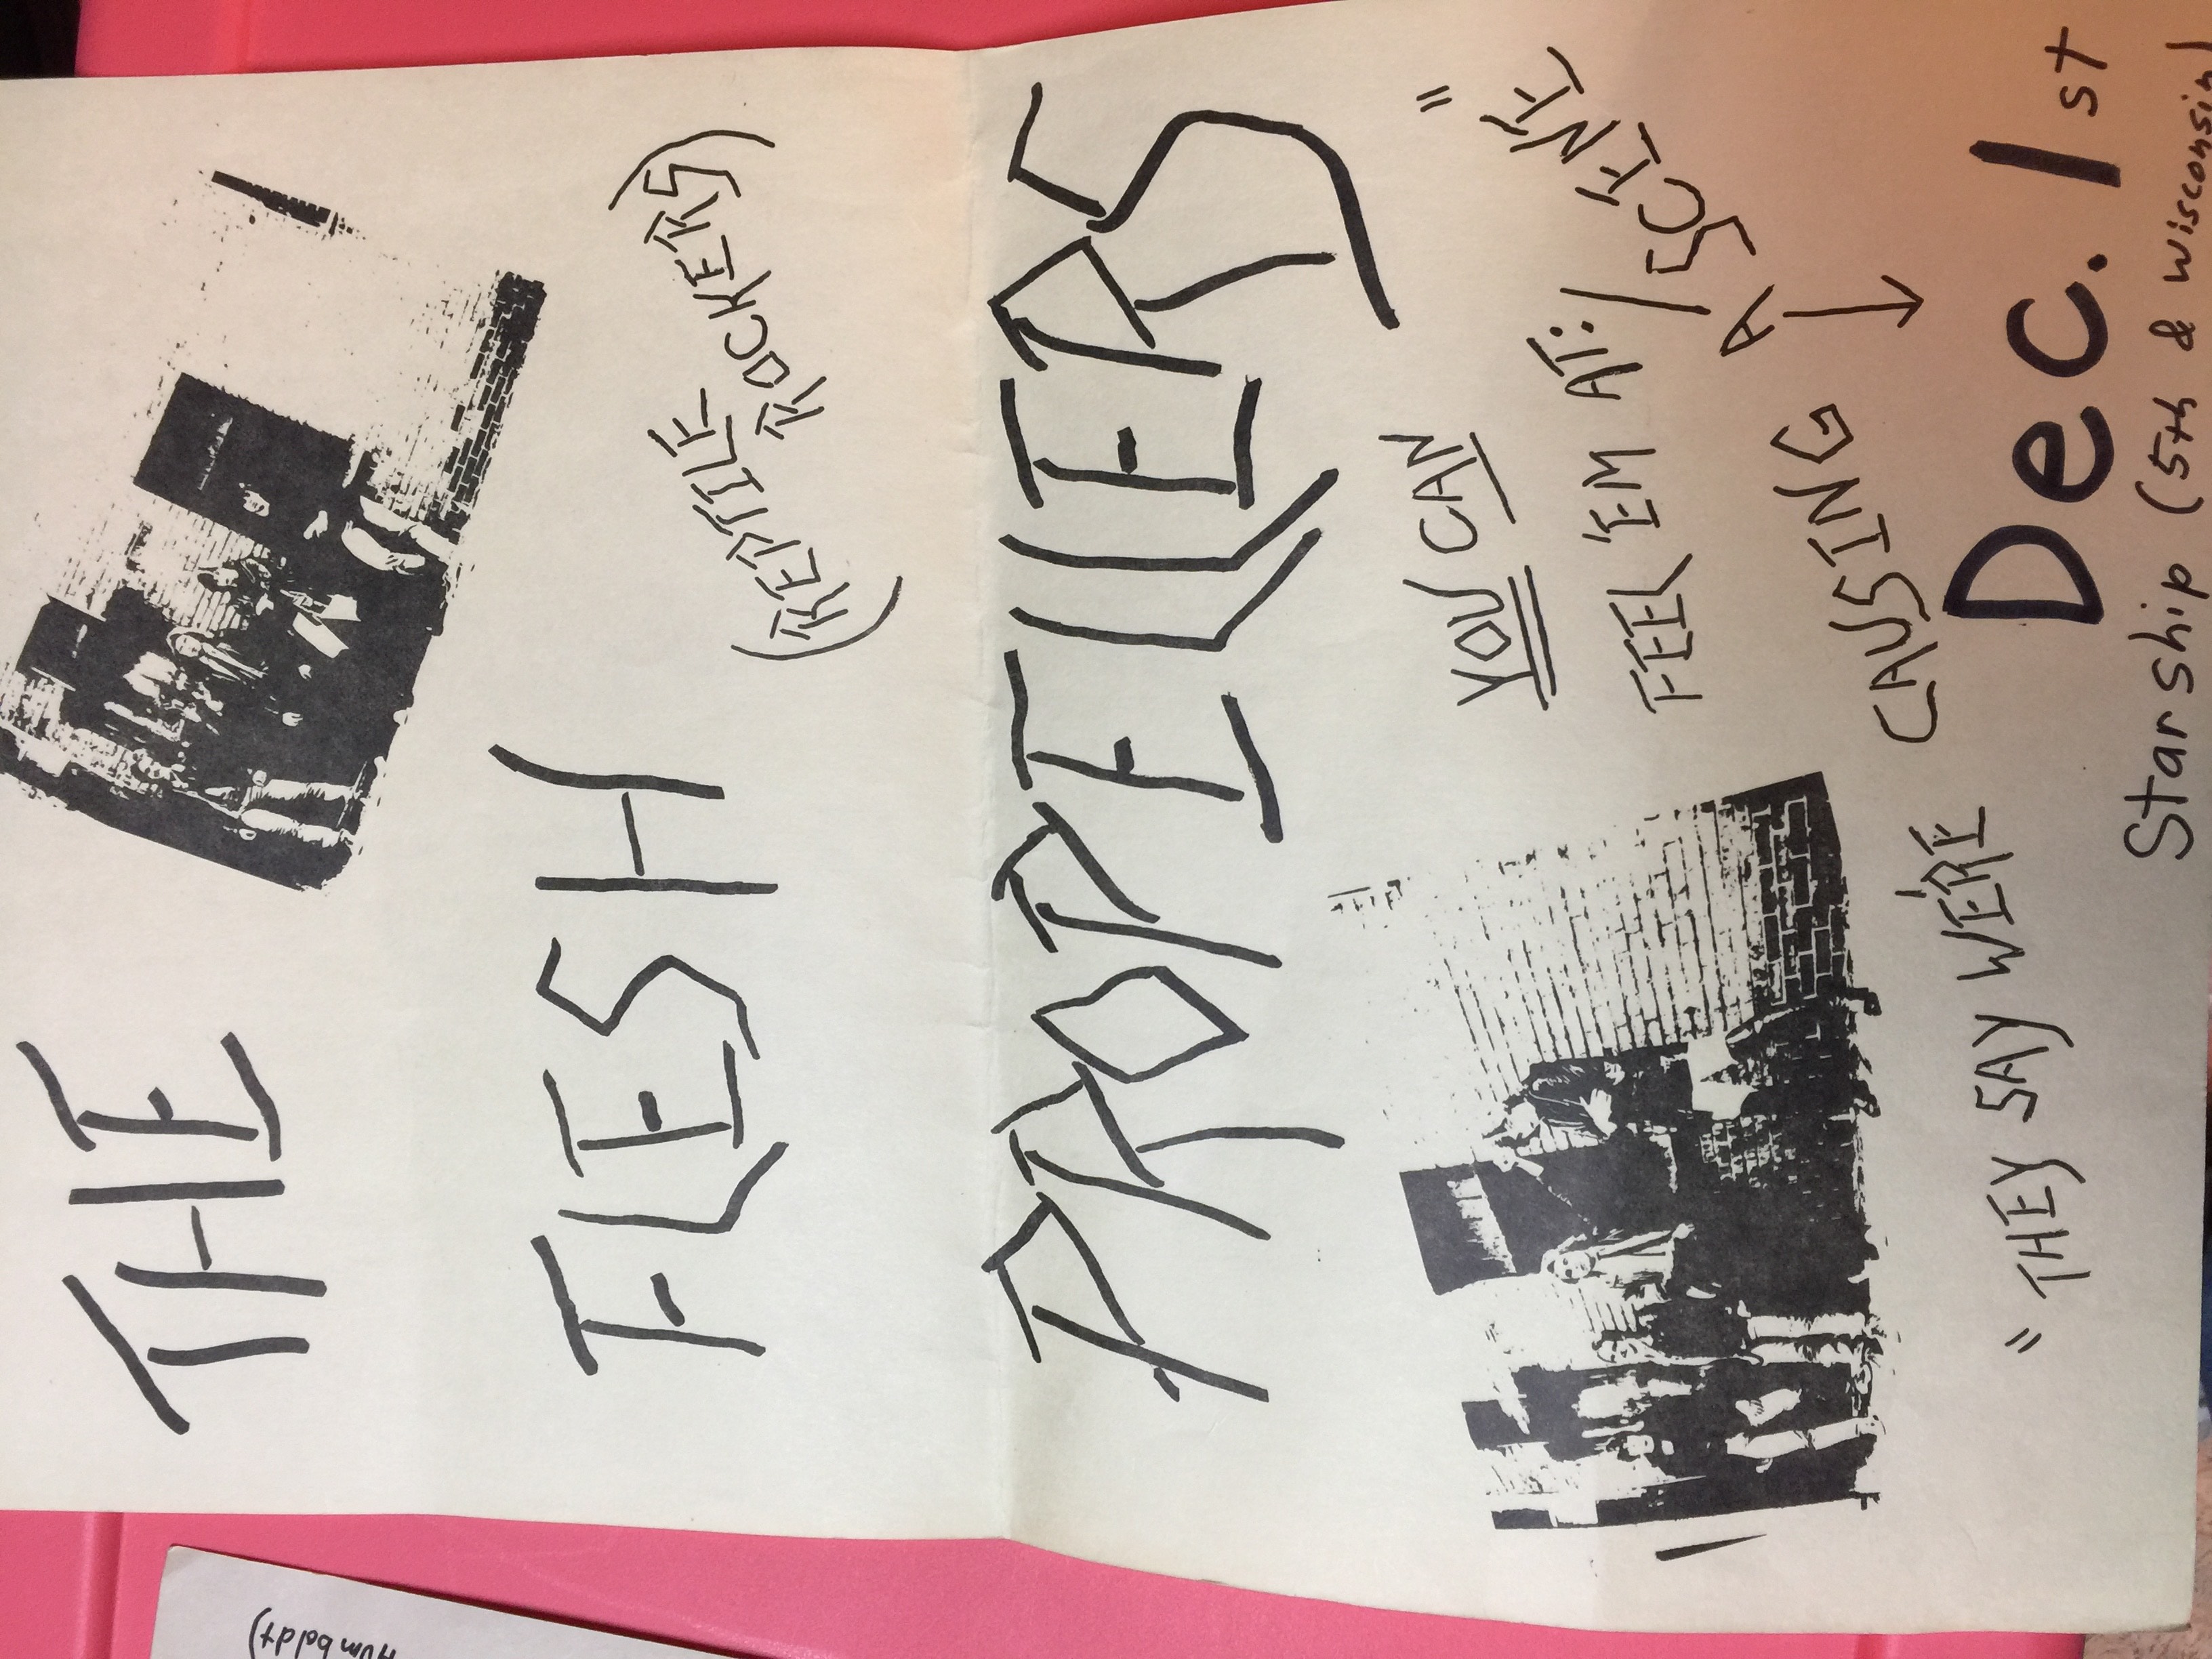 THE
FLESH
(REPTILE-
ROCKERS)
PROPELLERS
YOU CAN
FEEL 'EM AT:
"THEY SAY WE'RE
CAUSING
A
SCENE"
Dec. 1st
Starship (5th & Wisconsin)
Humboldt)